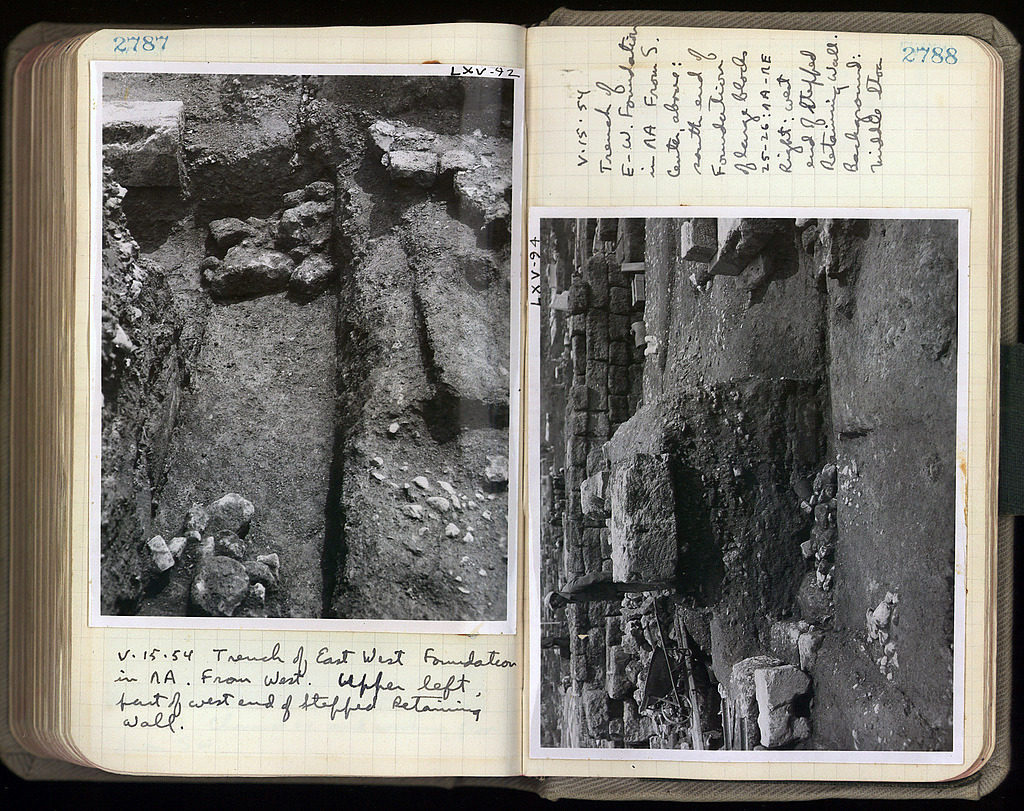 2787
LXV-92
V.15.54 Trench of East West Foundation
in ΛA. From West. Upper left,
part of west end of Stepped Retaining
Wall.
2788
V.15.54
Trench of
E-W. Foundation
in ΛA From S.
Center, above:
south end of
Foundation
of large blocks
25-26:ΛA-ΛE
Right: west
end of Stepped
Retaining Wall.
Background:
Middle Stoa
LXV-94